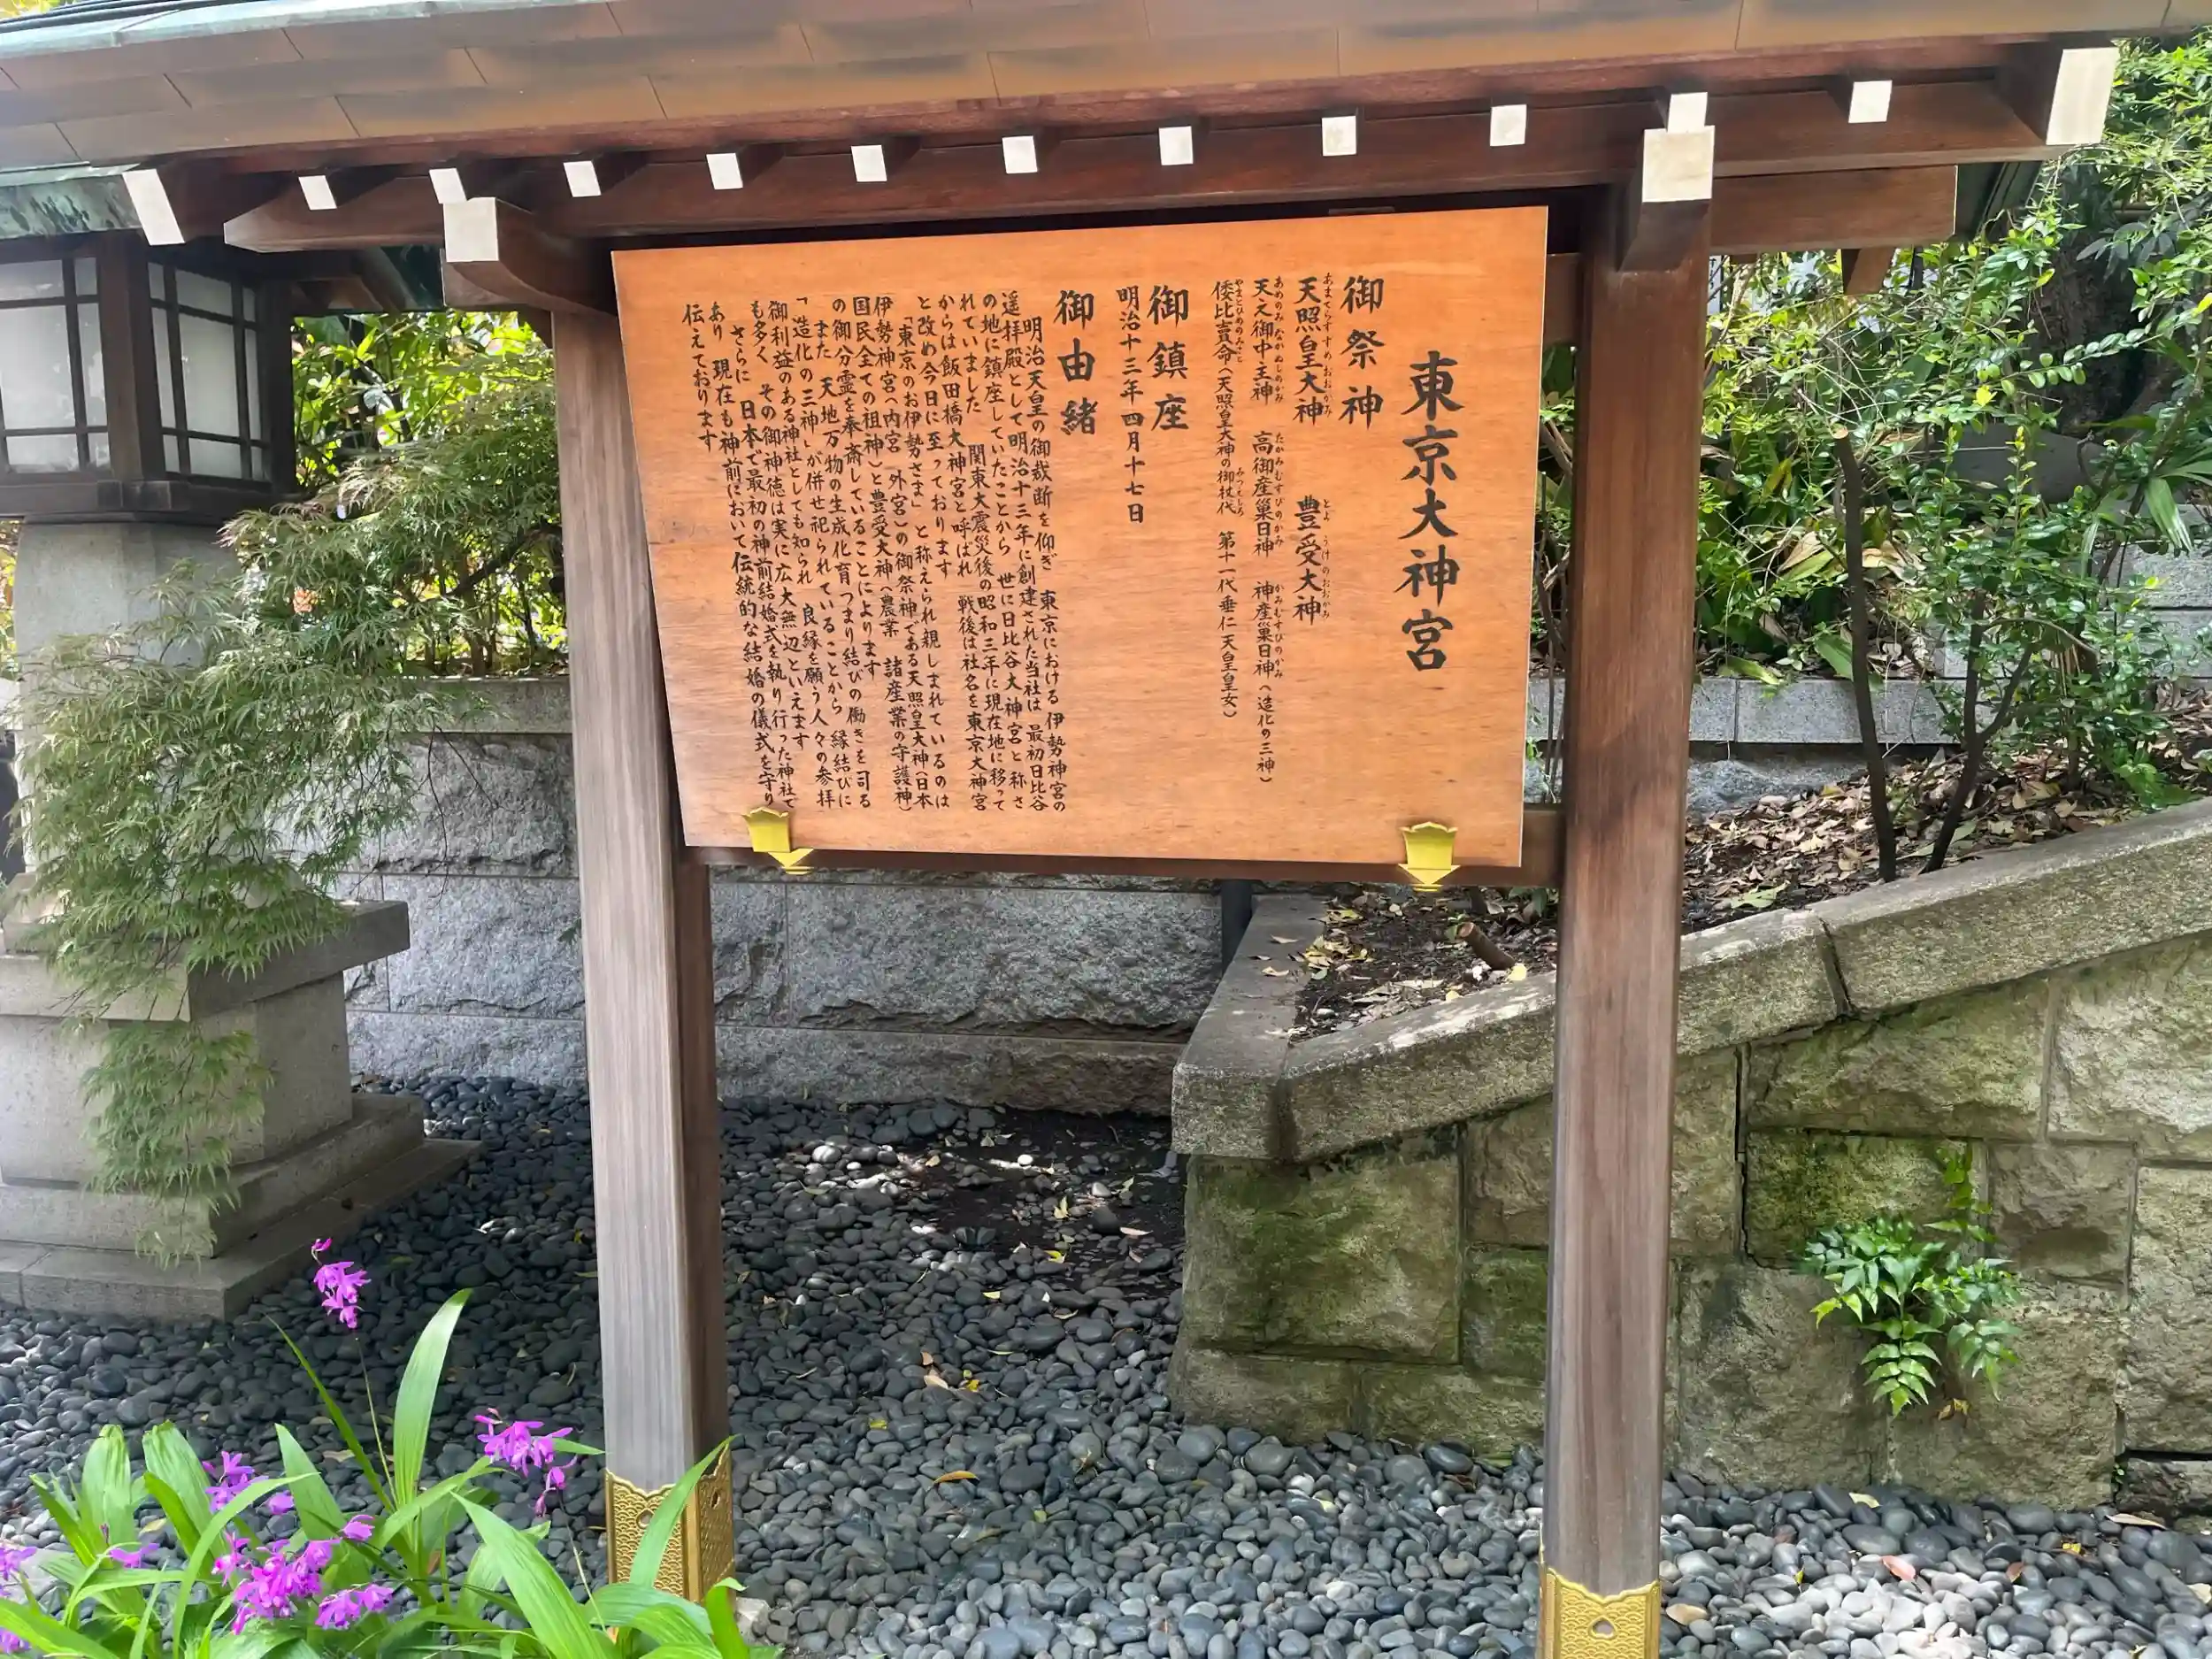 東京大神宮
御祭神
天照皇大神　豊受大神
あまてらすすめおおかみ　とようけのおおかみ
天之御中主神　高御産巣日神　神産巣日神（造化の三神）
あめのみなかぬしのかみ　たかみむすびのかみ　かみむすびのかみ
倭比賣命（天照皇大神の御杖代　第十一代垂仁天皇皇女）
やまとひめのみこと　みつえしろ
御鎮座
明治十三年四月十七日
御由緒
明治天皇の御裁断を仰ぎ　東京における伊勢神宮の
遥拝殿として明治十三年に創建された当社は　最初日比谷
の地に鎮座していたことから　世に日比谷大神宮と称さ
れていました　関東大震災後の昭和三年に現在地に移って
からは飯田橋大神宮と呼ばれ　戦後は社名を東京大神宮
と改め今日に至っております
「東京のお伊勢さま」と称えられ親しまれているのは
伊勢神宮（内宮　外宮）の御祭神である天照皇大神（日本
国民全ての祖神）と豊受大神（農業　諸産業の守護神）
の御分霊を奉斎していることによります
また　天地万物の生成化育つまり結びの働きを司る
「造化の三神」が併せ祀られていることから　縁結びに
御利益のある神社としても知られ　良縁を願う人々の参拝
も多く　その御神徳は実に広大無辺といえます
さらに　日本で最初の神前結婚式を執り行った神社で
あり　現在も神前において伝統的な結婚の儀式を守り
伝えております